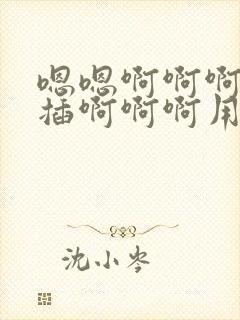 嗯嗯啊啊啊
插啊啊啊用
沈小岑